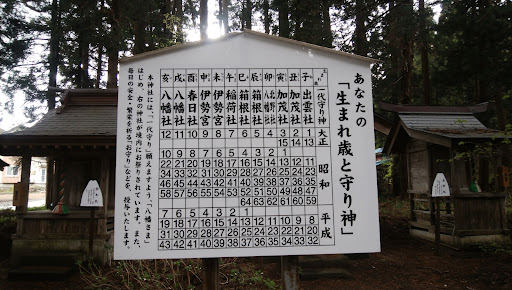 あなたの
「生まれ歳と守り神」
一代守り神
子 出雲社
丑 加茂社
寅 加茂社
卯 北野社
辰 箱根社
巳 箱根社
午 稲荷社
未 伊勢宮
申 伊勢宮
酉 春日社
戌 八幡社
亥 八幡社
大正
12 11 10 9 8 7 6 5 4 3 2 1
15 14 13
昭和
10 9 8 7 6 5 4 3 2 1
22 21 20 19 18 17 16 15 14 13 12 11
34 33 32 31 30 29 28 27 26 25 24 23
46 45 44 43 42 41 40 39 38 37 36 35
58 57 56 55 54 53 52 51 50 49 48 47
64 63 62 61 60 59
平成
7 6 5 4 3 2 1
19 18 17 16 15 14 13 12 11 10 9 8
31 30 29 28 27 26 25 24 23 22 21 20
43 42 41 40 39 38 37 36 35 34 33 32
本神社には、「一代守り」願えますよう、「八幡さま」
をはじめ、右の神社が境内にお祭りされています。また、
毎日の安全・繁栄を祈る「お守り」などを、授与いたします。